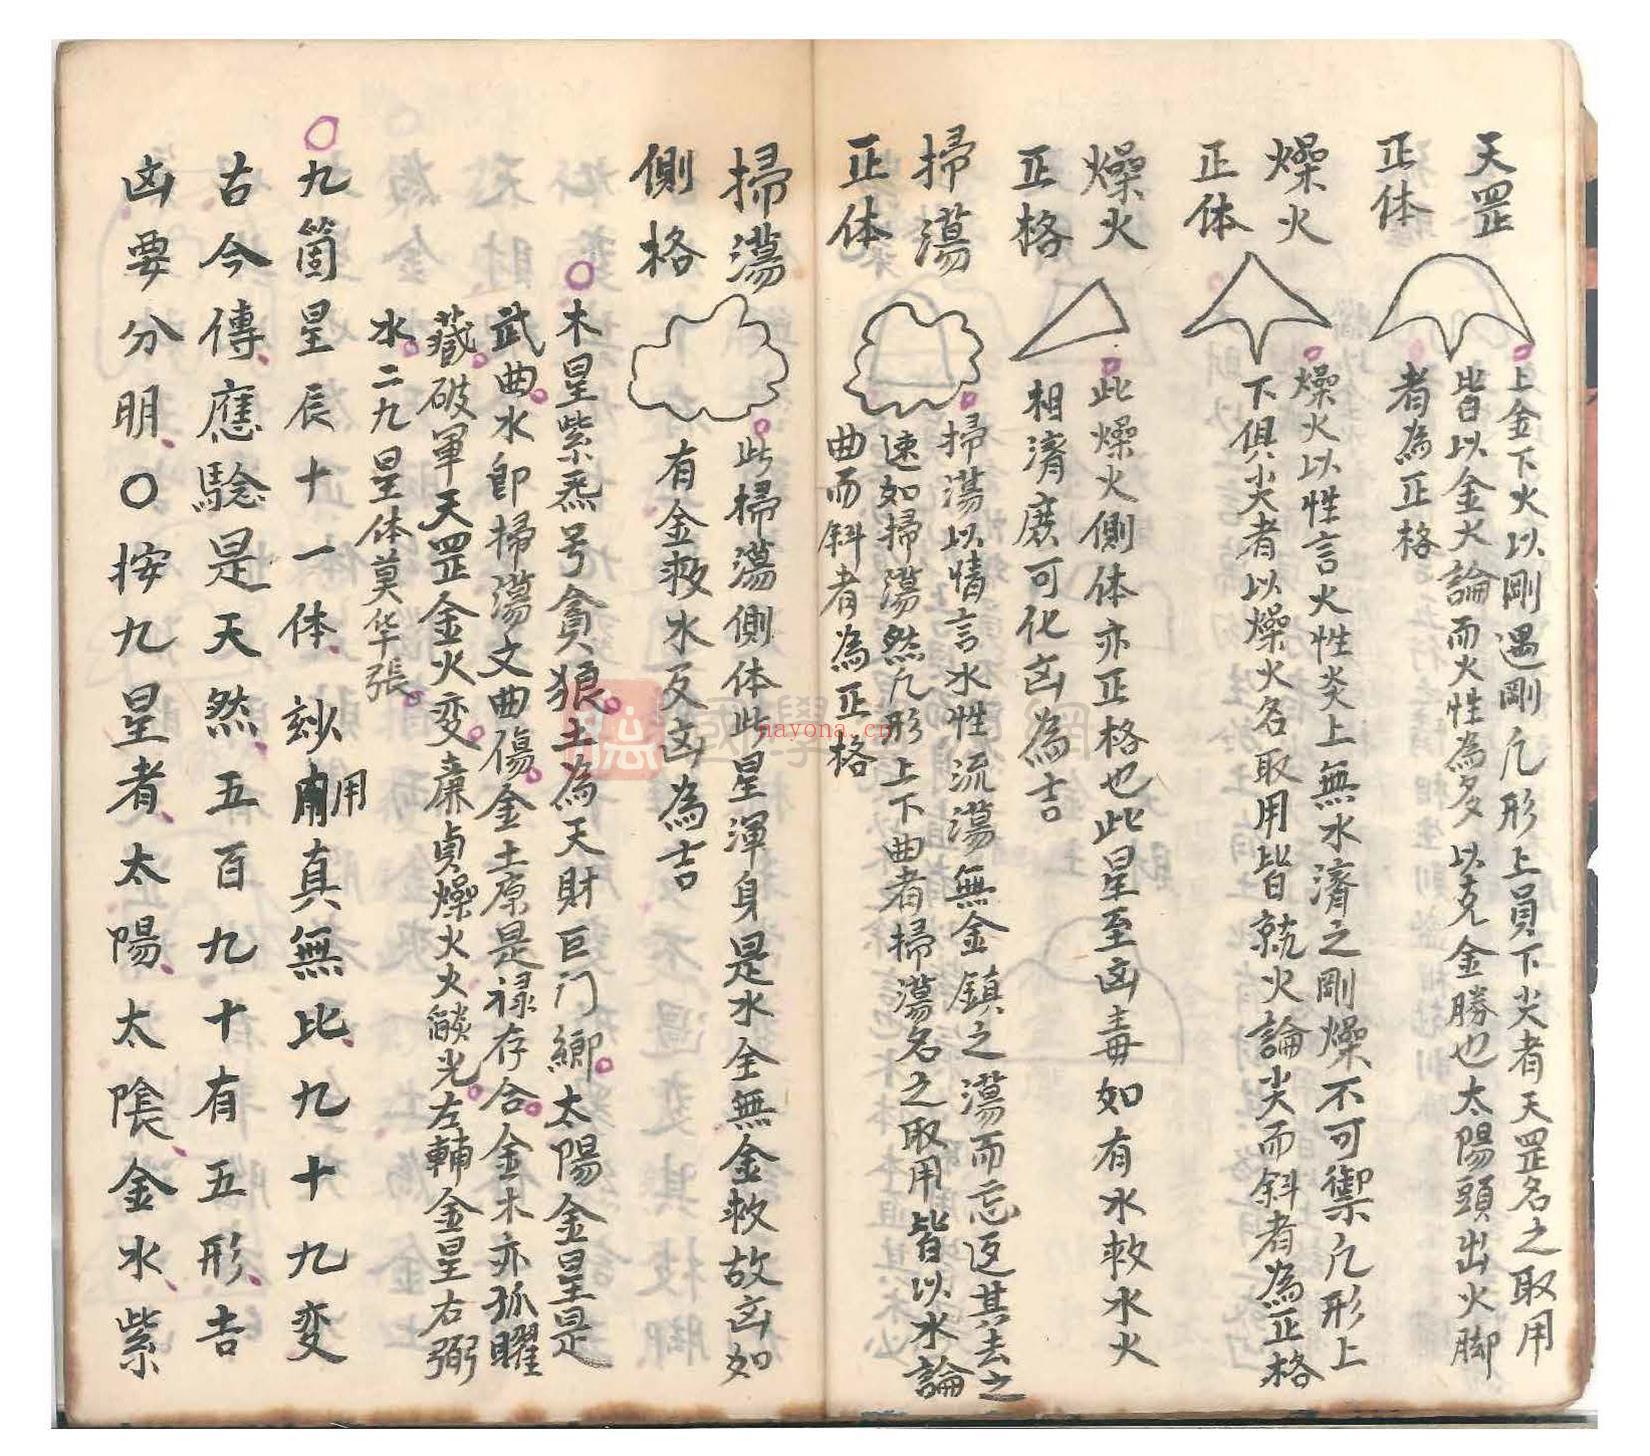 天罡
正体
上金下火以剛遇剛凢形上員下尖者天罡名之取用
皆以金火論而火性為多以克金勝也太陽頭出火脚
者為正格
燥火
正体
燥火以性言火性炎上無水濟之剛燥不可禦凢形上
下俱尖者以燥火名取用皆就火論尖而斜者為正格
燥火
正格
此燥火側体亦正格也此星至凶毒如有水救水火
相濟廃可化凶為吉
掃蕩
正体
掃蕩以情言水性流蕩無金鎮之蕩而忘返其去之
速如掃蕩然凢形上下曲者掃蕩名之取用皆以水論
曲而斜者為正格
掃蕩
側格
此掃蕩側体此星渾身是水全無金救故凶如
有金救水反凶為吉
木星紫炁号貪狼土為天財巨门鄉太陽金星是
武曲水即掃蕩文曲傷金土原是禄存合金木亦孤曜
藏破軍天罡金火变廉貞燥火火燄光左輔金星右弼
水二九星体莫华張
九箇星辰十一体妙用真無比九十九变
古今傳應驗是天然五百九十有五形吉
凶要分明〇按九星者太陽太陰金水紫
國學
nayona.cn